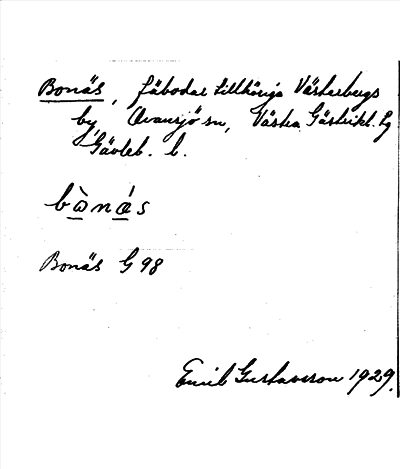 Bonäs, fäbodar tillhöriga Västerbergs
by, Ovansjö sn, Västra Gästrikl. tg
Gävleb. l.
bònás
Bonäs G 98
Emil Gustavsson 1929.